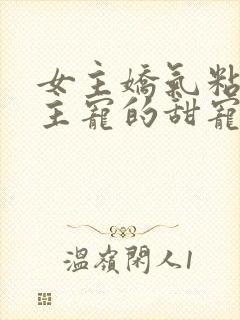 女主嬌氣粘
主寵的甜寵
溫嶺閑人1